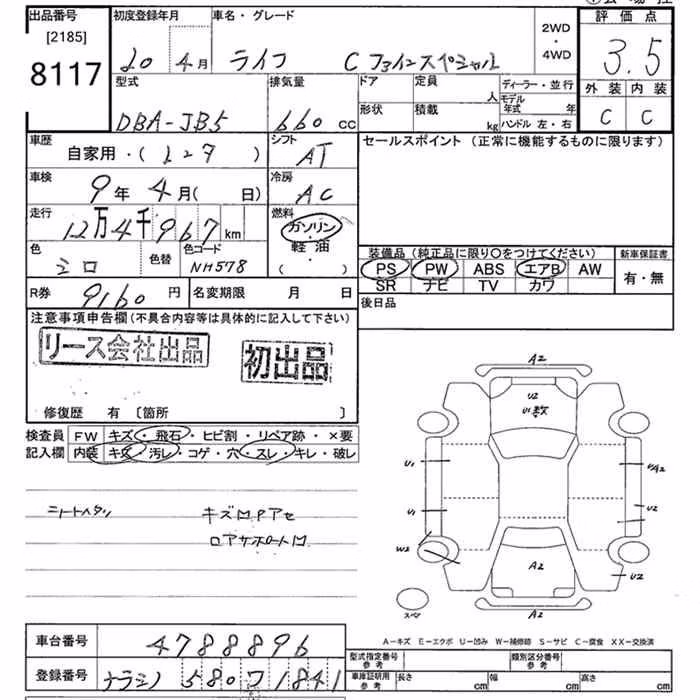 出品番号 初度登録年月 車名・グレード 2WD 評価点
[2185] 20年4月 ライフ C ファインスペシャル 4WD 3.5
8117 型式 排気量 ドア 定員 人 ディーラー・並行 外装 内装
DBA-JB5 660cc 形状 積載 kg モデル年式 年 ハンドル 左・右 C C
車歴 シフト セールスポイント（正常に機能するものに限ります）
自家用・( ) AT
車検 9年4月( 日) 冷房 AC
走行 12万4千967km 燃料 ガソリン・軽油・( )
色 色替 色コード 装備品（純正品に限り○をつけてください） 新車保証書
NH578 PS PW ABS エアB AW 有・無
SR ナビ TV カワ
R券 9160円 名変期限 月 日 後日品
注意事項申告欄(不具合内容等は具体的に記入して下さい)
リース会社出品 初出品
修復歴 有 〔箇所 〕
検査員 FW キズ・飛石・ヒビ割・リペア跡・×要
記入欄 内装 キズ・汚レ・コゲ・穴・スレ・キレ・破レ
A2
U2
U1数
U1
U2
U1
W2
A2
U2
A2
シートヘタリ キズ
A－キズ E－エクボ U－凹み W－補修跡 S－サビ C－腐食 XX－交換済
車台番号 4788896 型式指定番号 参考 類別区分番号 参考
登録番号 ナラシノ 580 1841 車庫証明用 参考 長さ cm 幅 cm 高さ cm